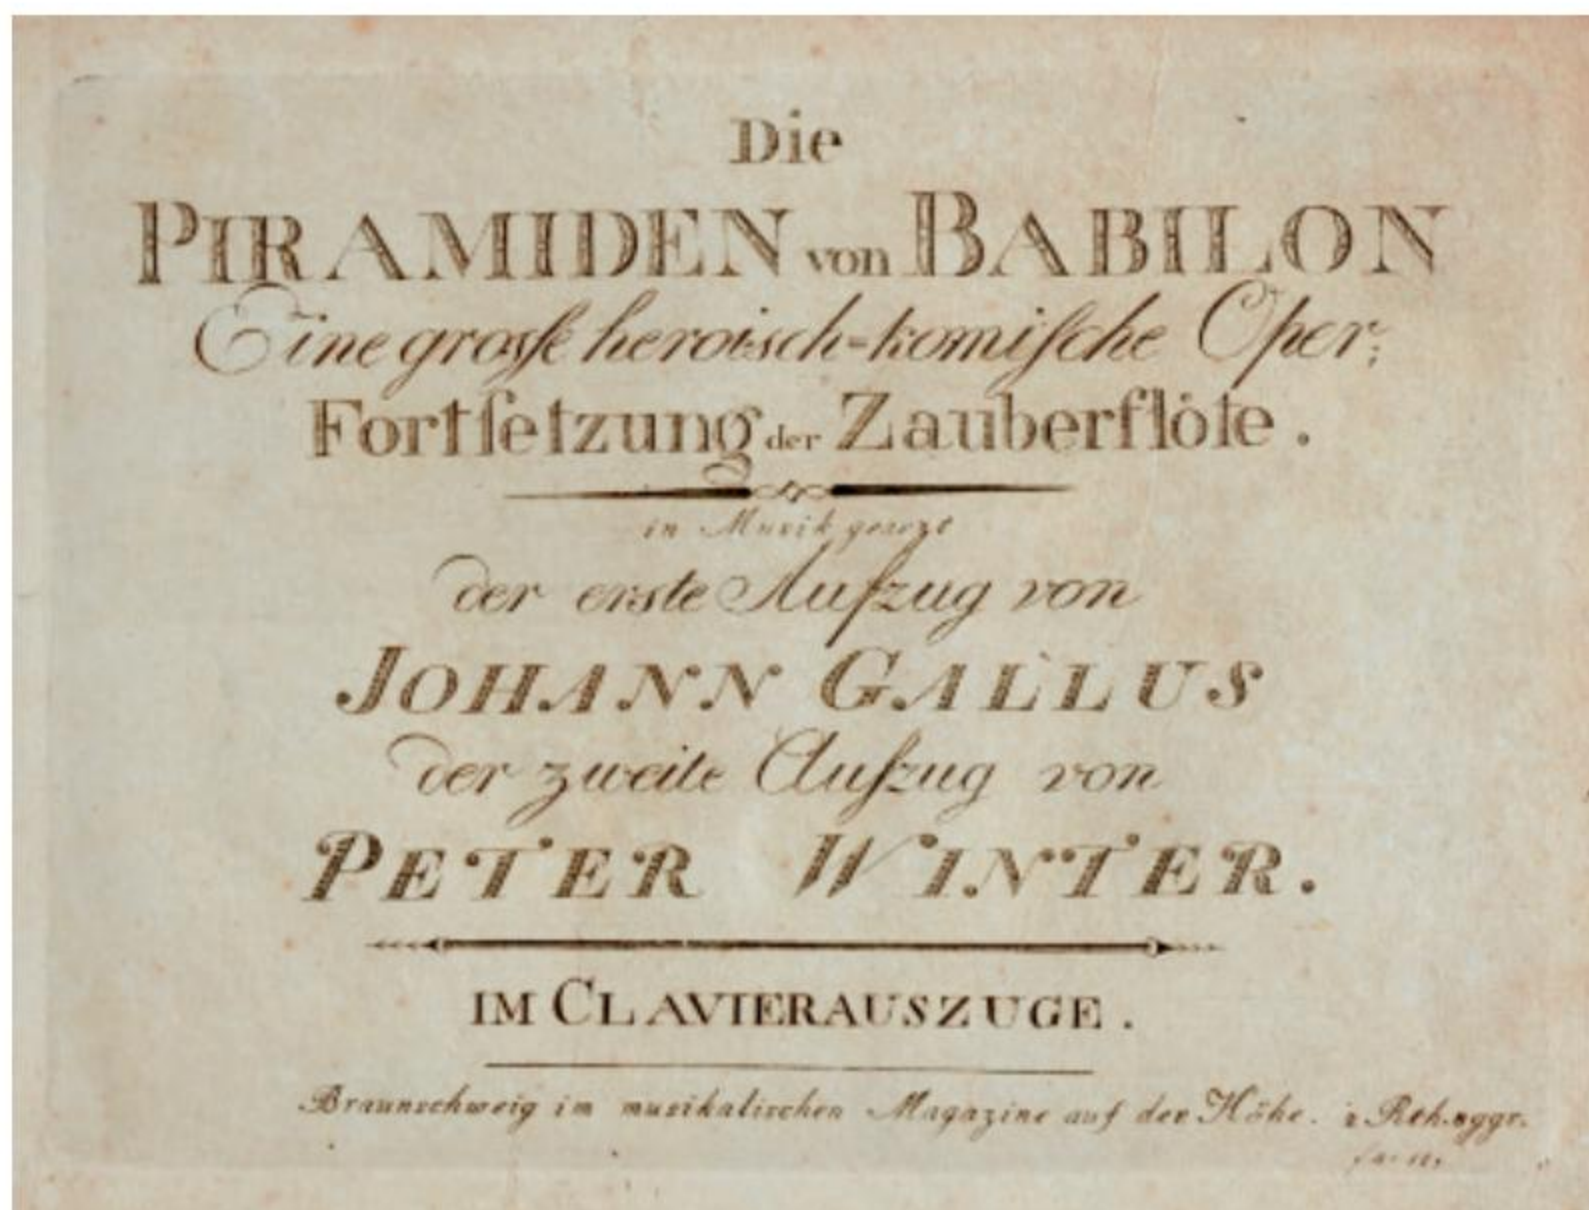 Die
PIRAMIDEN von BABILON
Eine groſse heroisch-komiſche Oper;
Fortſetzung der Zauberflöte.
in Musik gesezt
der erste Aufzug von
JOHANN GALLUS
der zweite Aufzug von
PETER WINTER.
IM CLAVIERAUSZUGE.
Braunschweig im musikalischen Magazine auf der Höhe. 2 Rth. 8ggr.